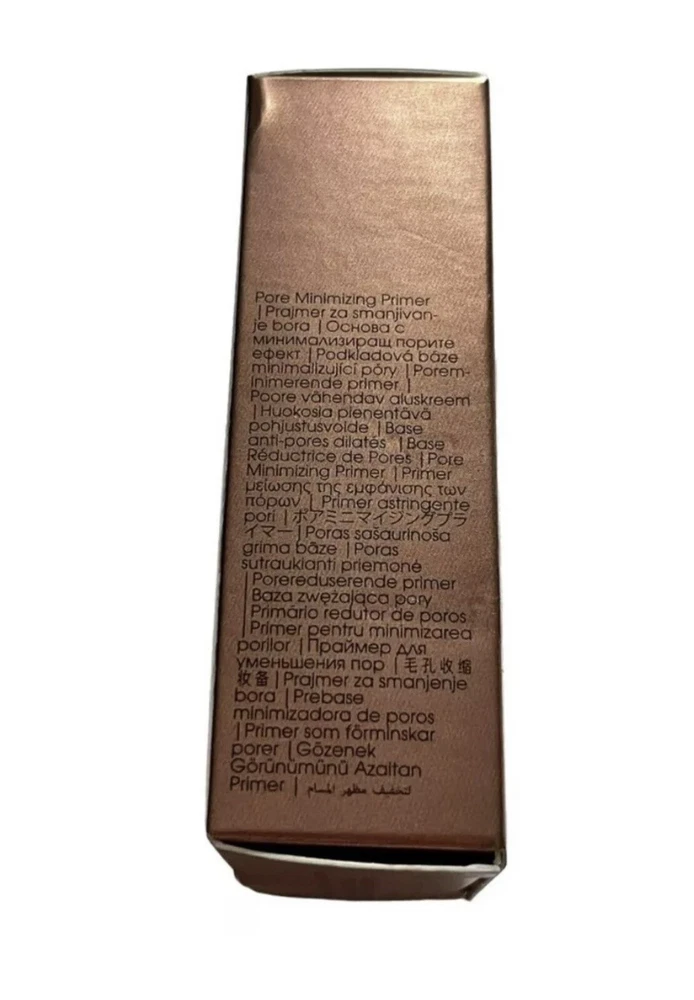 Pore Minimizing Primer
| Prajmer za smanjivan-
je bora | Основа с
минимализиращ порите
ефект | Podkladová báze
minimalizující póry | Porem-
inimerende primer |
Poore vähendav aluskreem
| Huokosia pienentävä
pohjustusvoide | Base
anti-pores dilatés | Base
Réductrice de Pores | Pore
Minimizing Primer | Primer
μείωσης της εμφάνισης των
πόρων | Primer astringente
pori | ポアミニマイジングプラ
イマー | Poras sašaurinoša
grima bāze | Poras
sutraukianti priemonė
| Porereduserende primer
| Baza zwężająca pory
| Primário redutor de poros
| Primer pentru minimizarea
porilor | Праймер для
уменьшения пор | 毛孔收缩
妆备 | Prajmer za smanjenje
bora | Prebase
minimizadora de poros
| Primer som förminskar
porer | Gözenek
Görünümünü Azaltan
Primer | لتخفيف مظهر المسام